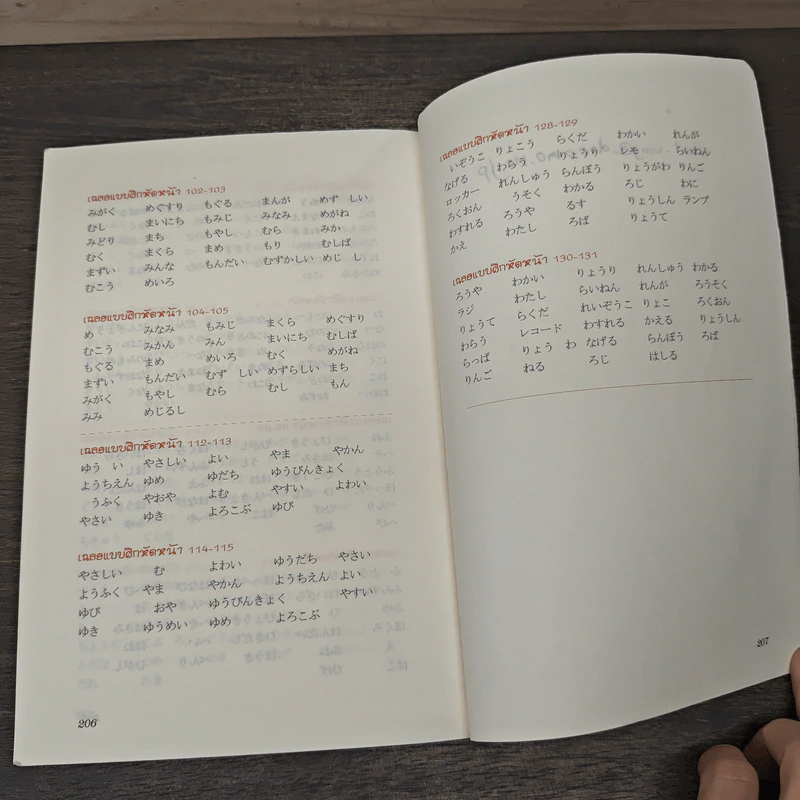 เฉลยแบบฝึกหัดหน้า 102-103
みがく めぐすり もぐる まんが めず しい
むし まいにち もみじ みなみ めがね
みどり まち もやし むら みか
むく まくら まめ もり むしば
まずい みんな もんだい むずかしい めじ し
むこう めいろ
เฉลยแบบฝึกหัดหน้า 104-105
め みなみ もみじ まくら めぐすり
むこう みかん みん まいにち むしば
もぐる まめ めいろ むく めがね
まずい もんだい むず しい めずらしい まち
みがく もやし むら むし もん
みみ めじるし
เฉลยแบบฝึกหัดหน้า 112-113
ゆう い やさしい よい やま やかん
ようちえん ゆめ ゆだち ゆうびんきょく
うふく やおや よむ やすい よわい
やさい ゆき よろこぶ ゆび
เฉลยแบบฝึกหัดหน้า 114-115
やさしい む よわい ゆうだち やさい
ようふく やま やかん ようちえん よい
ゆび おや ゆうびんきょく やすい
ゆき ゆうめい ゆめ よろこぶ
206
เฉลยแบบฝึกหัดหน้า 128-129
いぞうこ りょこう らくだ わかい れんが
なげる わらう りょうり レモ らいねん
ロッカー れんしゅう らんぼう りょうがわ りんご
ろくおん うそく わかる ろじ わに
わすれる ろうや るす りょうしん ランプ
かえ わたし ろば りょうて
เฉลยแบบฝึกหัดหน้า 130-131
ろうや わかい りょうり れんしゅう わかる
ラジ わたし らいねん れんが ろうそく
りょうて らくだ れいぞうこ りょこ ろくおん
わらう レコード わすれる かえる りょうしん
らっぱ りょう わ なげる らんぼう ろば
りんご ねる ろじ はしる
207